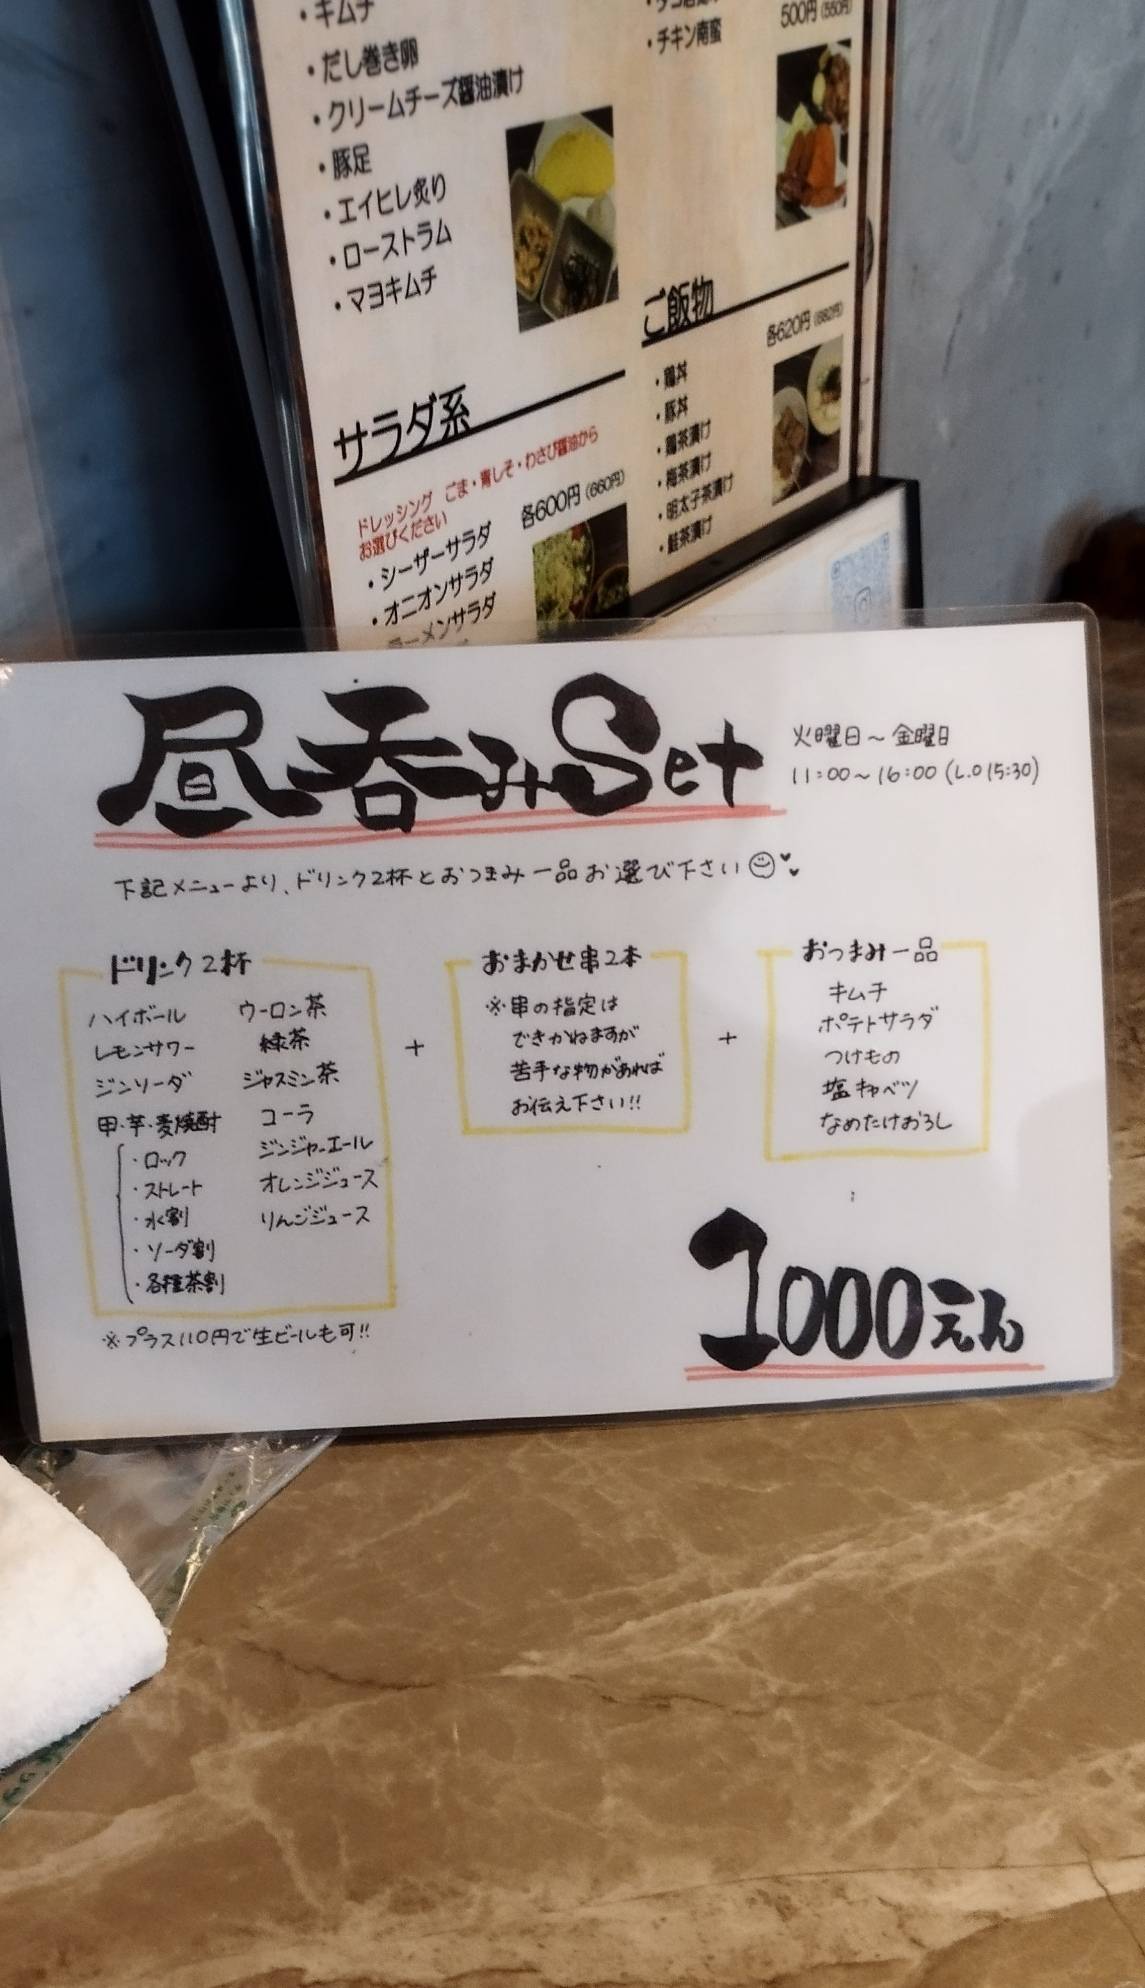 ・キムチ
・だし巻き卵
・クリームチーズ醤油漬け
・豚足
・エイヒレ炙り
・ローストラム
・マヨキムチ
サラダ系
ドレッシング ごま・青しそ・わさび醤油から
お選びください
各600円(660円)
・シーザーサラダ
・オニオンサラダ
ラーメンサラダ
500円(550円)
・チキン南蛮
ご飯物
各620円(682円)
・鶏丼
・豚丼
・鶏茶漬け
・梅茶漬け
・明太子茶漬け
・鮭茶漬け
昼呑みSet
火曜日～金曜日
11:00～16:00(L.O 15:30)
下記メニューより、ドリンク2杯とおつまみ一品お選び下さい
ドリンク2杯
ハイボール
レモンサワー
ジンソーダ
甲・芋・麦焼酎
・ロック
・ストレート
・水割
・ソーダ割
・各種茶割
ウーロン茶
緑茶
ジャスミン茶
コーラ
ジンジャーエール
オレンジジュース
りんごジュース
※プラス110円で生ビールも可!!
+
おまかせ串2本
※串の指定は
できかねますが
苦手な物があれば
お伝え下さい!!
+
おつまみ一品
キムチ
ポテトサラダ
つけもの
塩キャベツ
なめたけおろし
1000えん